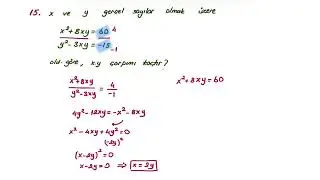 15. x ve y gerçel sayılar olmak üzere
x²+8xy = 60 4
y²-3xy = -15 -1
old. göre, x.y çarpımı kaçtır?
x²+8xy / y²-3xy = 4 / -1
x²+8xy = 60
4y²-12xy = -x²-8xy
x²-4xy+4y²=0
(-2y)²
(x-2y)²=0
x-2y=0 ⇒ x=2y